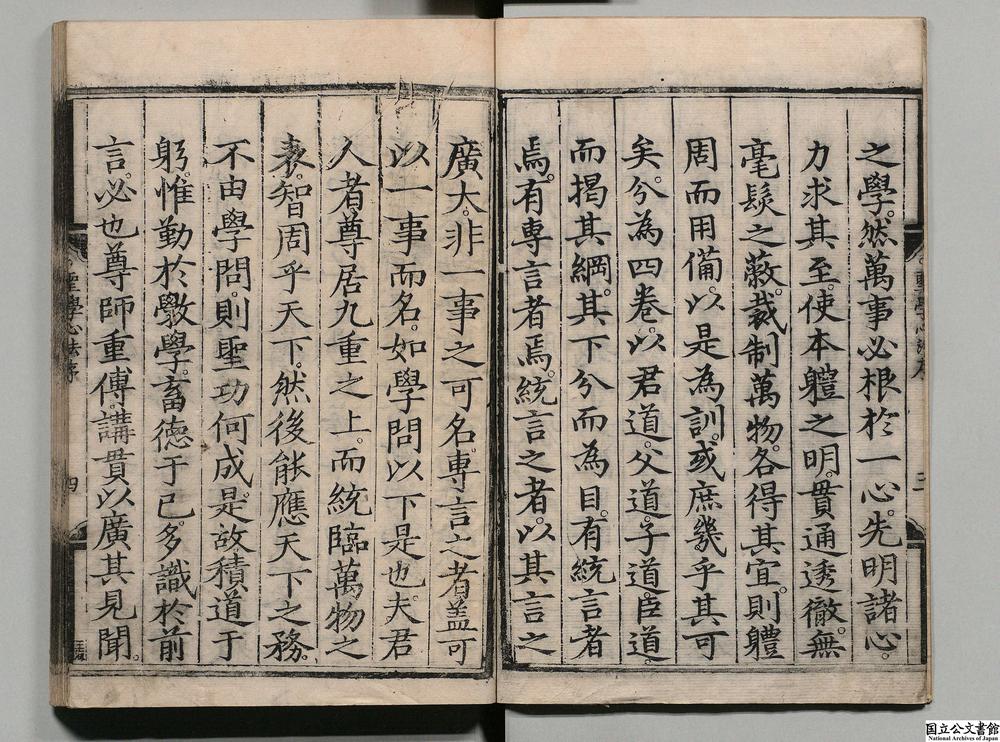 之學。然萬事必根於一心。先明諸心。
力求其至。使本體之明。貫通透徹。無
毫髮之蔽。裁制萬物。各得其宜。則體
周而用備。以是為訓。或庶幾乎其可
矣。分為四卷。以君道。父道。子道。臣道。
而揭其綱。其下分而為目。有統言者
焉。有專言者焉。統言之者。以其言之
廣大。非一事之可名。專言之者。蓋可
以一事而名。如學問以下是也。夫君
人者。尊居九重之上。而統臨萬物之
表。智周乎天下。然後能應天下之務。
不由學問。則聖功何成。是故積道于
躬。惟勤於斆學。畜德于己。多識於前
言。必也尊師重傅。講貫以廣其見聞。
聖學心法序
四
国立公文書館
National Archives of Japan